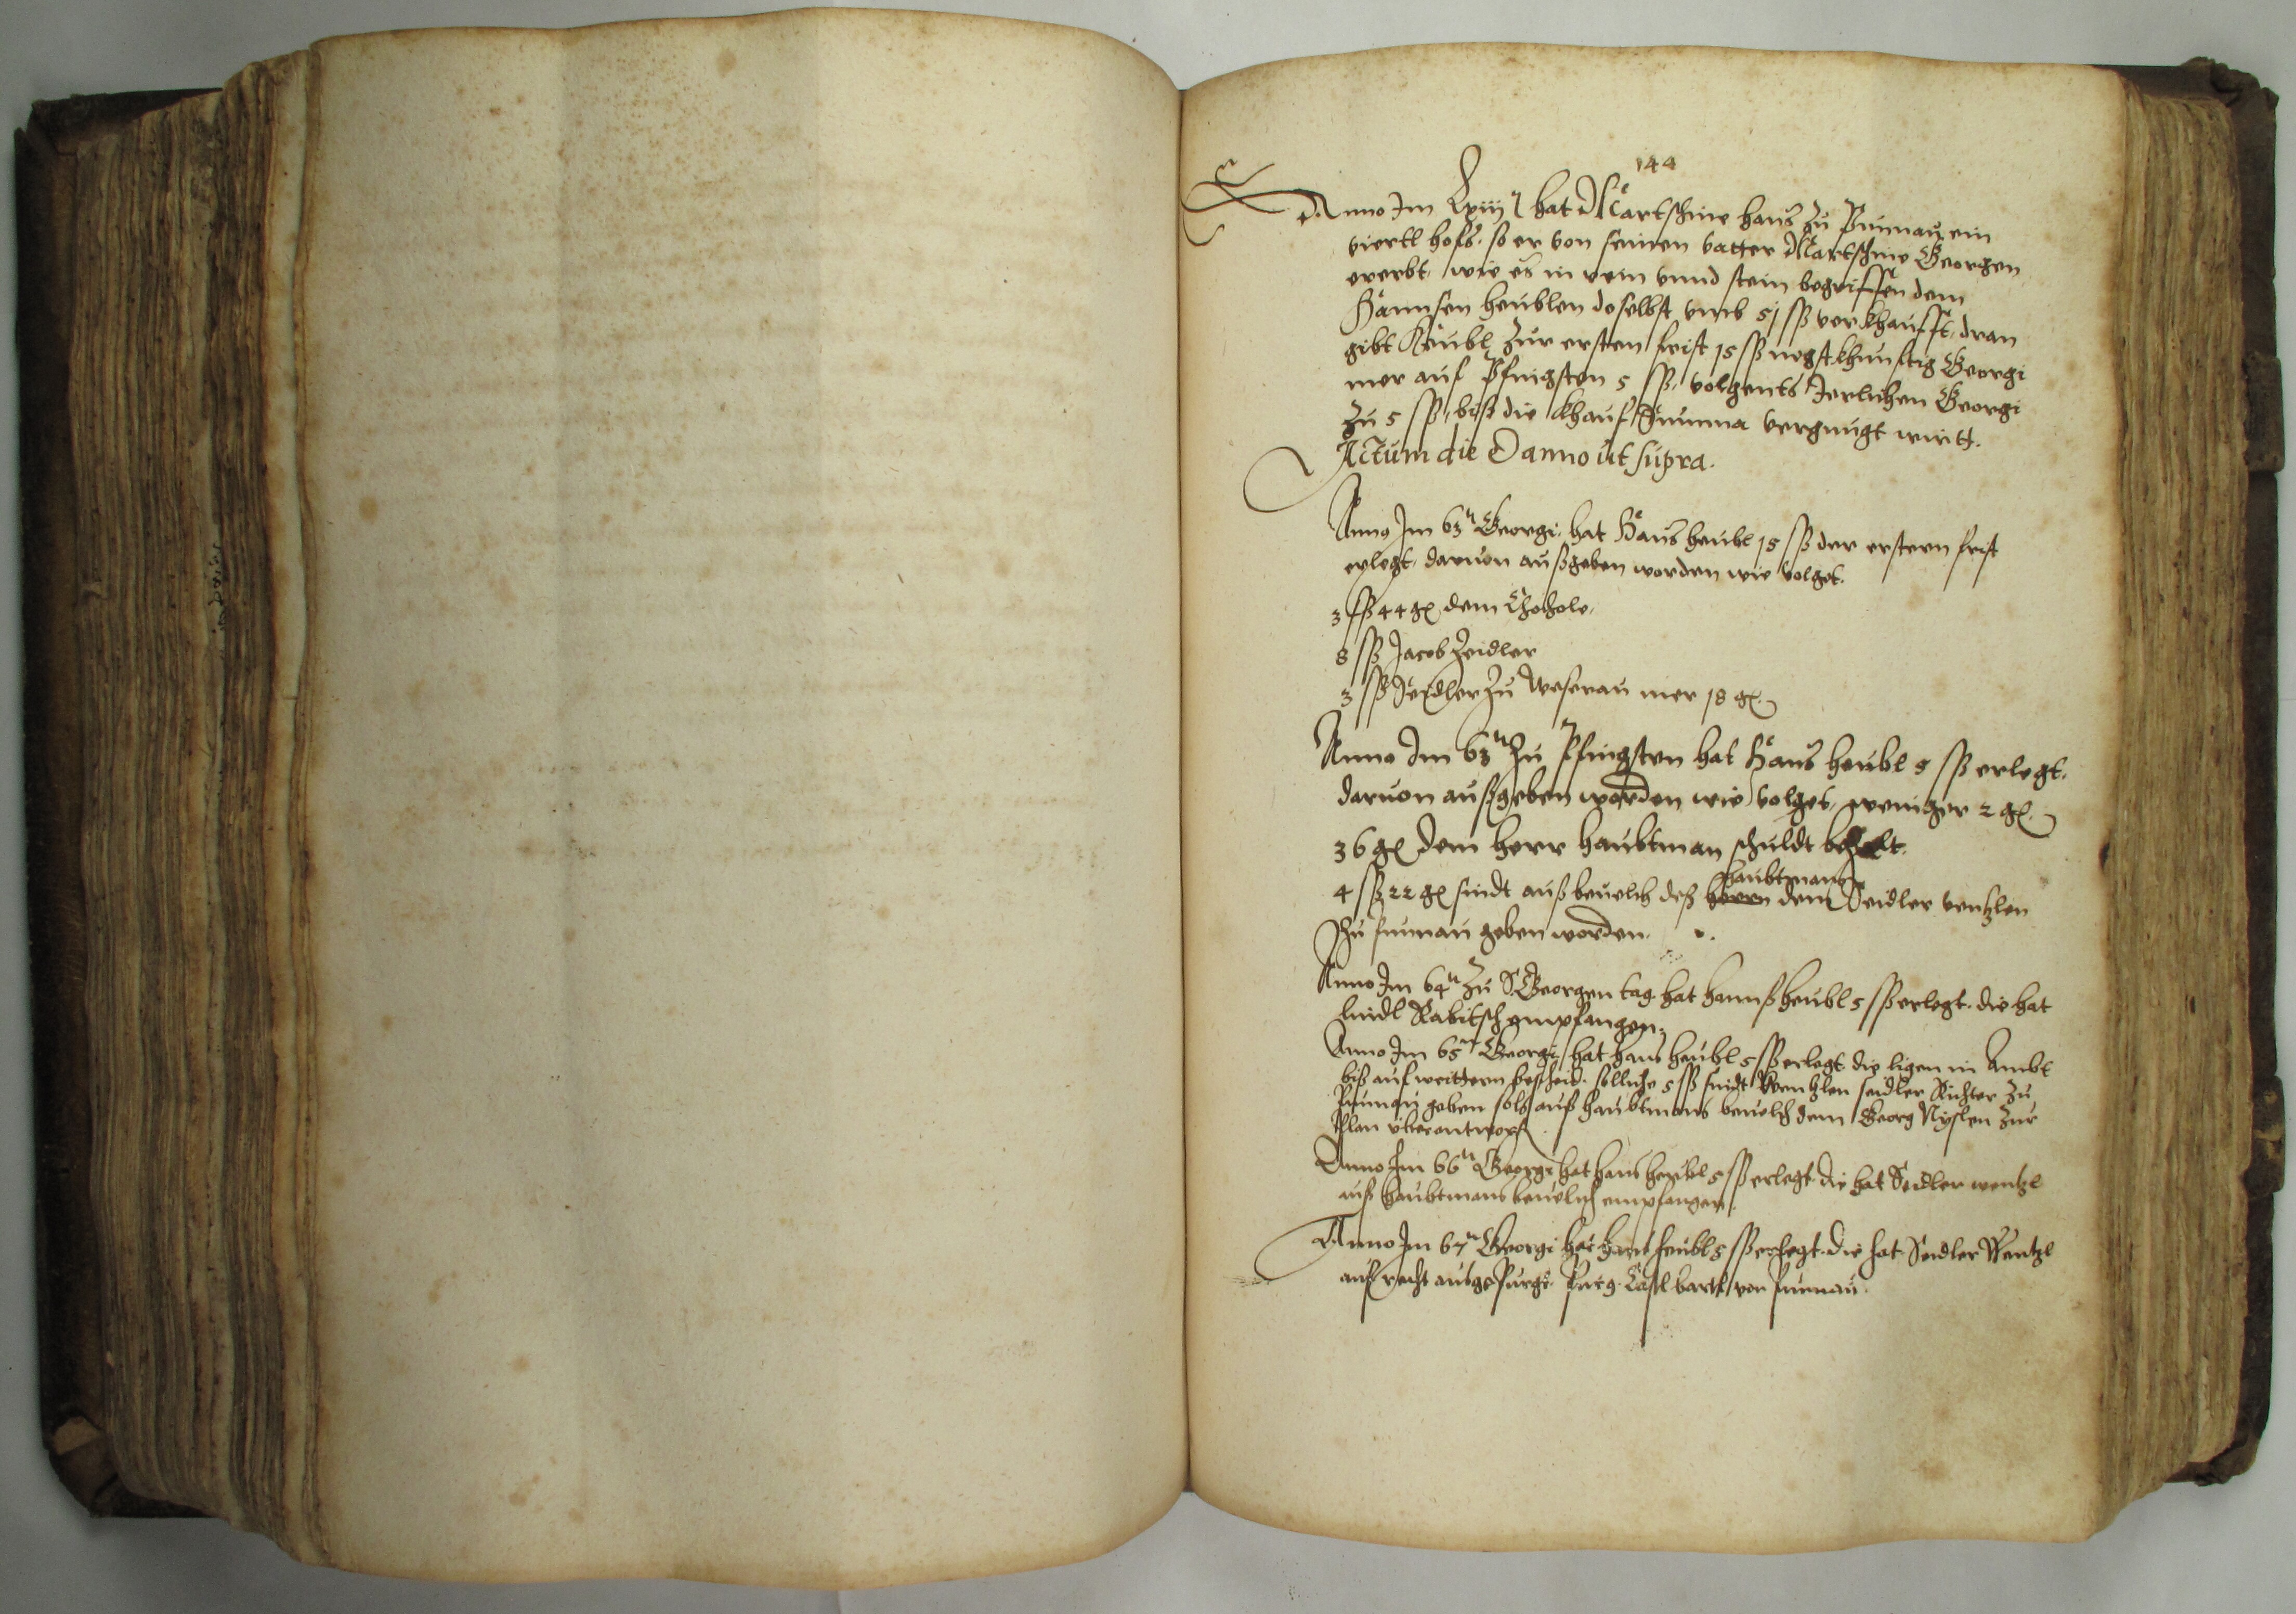 144
Anno Im Lxiij hat Martschine hans zu Pinnau, ein
viertl hofs. so er von seinen vatter Martschine Georgen
ererbt, wie es in rein vnnd stein begriffen dem
Hannsen heublen doselbst vmb 51 ß verkhaufft, dran
gibt Heubl zur ersten frist 15 ß negstkhunftig Georgi
mer auf Pfingsten 5 ß, volgents Jerlichen Georgi
zu 5 ß, biß die khauf Summa vergnugt wirtt.
Actum die & anno ut supra.
Anno Im 63 Georgi hat Hans heubl 15 ß der erstern frist
erlegt, daruon außgeben worden wie volget.
3 ß 44 g dem
8 ß Jacob Zeidler
3 ß Zeidler zu Weserau mer 18 g.
Anno Im 63 zu Pfingsten hat Hans heubl 5 ß erlegt.
daruon außgeben worden wie volget, weniger 2 g.
36 g dem herr haubtman schuldt
haubtmans
4 ß 22 g sindt auß beuelch deß herrn dem Seidler wentzlen
zu geben worden.
Anno Im 64 zu S. Georgen tag hat hannß heubl 5 ß erlegt. die hat
lindl Rabitsch empfangen.
Anno Im 65 Georgi hat hans heubl 5 ß erlegt die ligen in Ambt
biß auf weittern bescheid. solliche 5 ß sindt Wentzlen seidler Richter zu
geben solß auß haubtmans beuelch dem Georg zur
Plan
Anno Im 66 Georgi hat hans heubl 5 ß erlegt die hat Seidler wentzl
auß haubtmans beuelch empfangen.
Anno Im 67 Georgi hat hans heubl 5 ß erlegt. die hat Seidler Wentzl
auf recht von